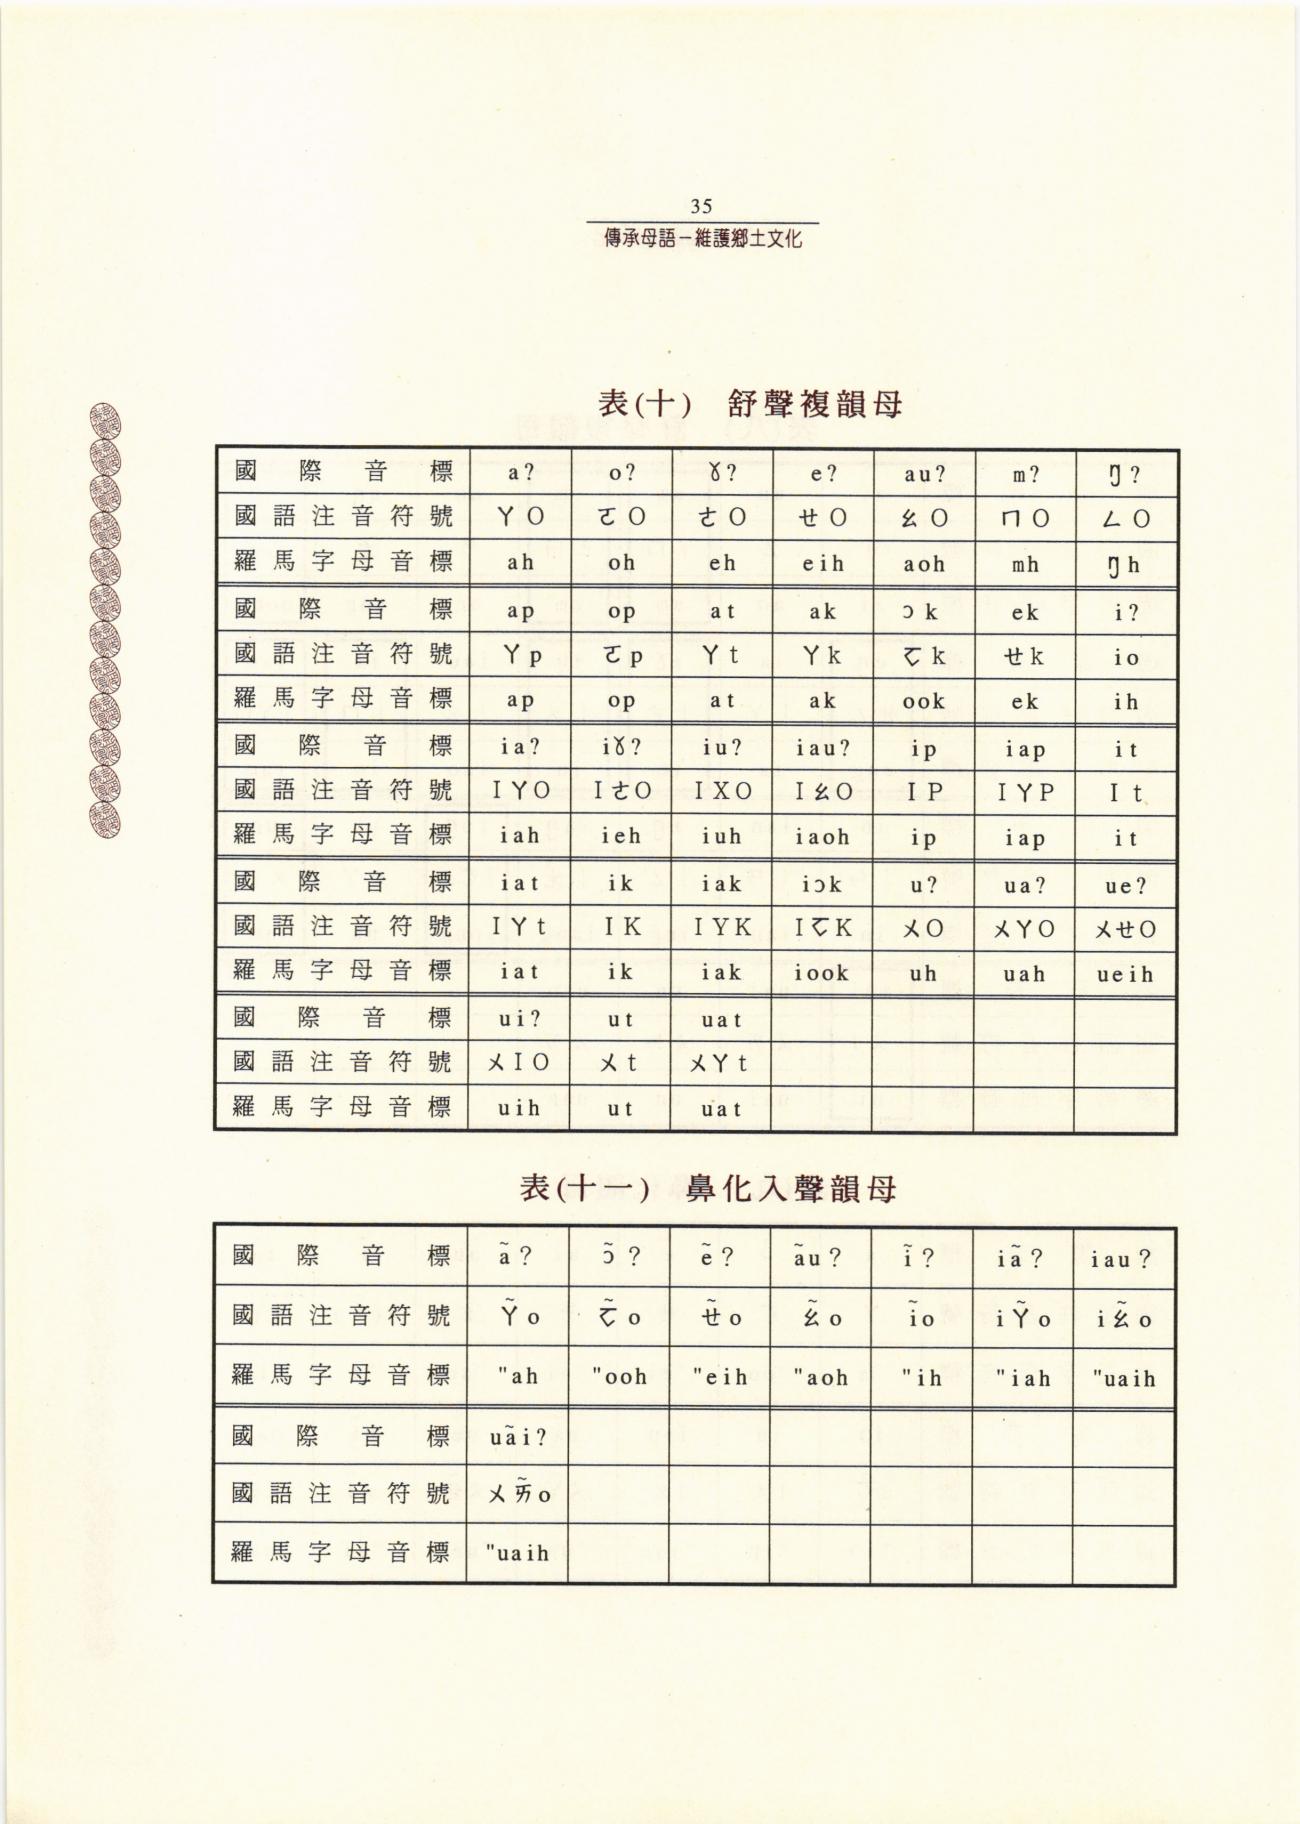 35
傳承母語－維護鄉土文化
表(十) 舒聲複韻母
國際音標 a? o? ɤ? e? au? m? ŋ?
國語注音符號 ㄚO ㄛO ㄜO ㄝO ㄠO ㄇO ㄥO
羅馬字母音標 ah oh eh eih aoh mh ŋh
國際音標 ap op at ak ɔk ek i?
國語注音符號 ㄚp ㄛp ㄚt ㄚk ㄛk ㄝk io
羅馬字母音標 ap op at ak ook ek ih
國際音標 ia? iɤ? iu? iau? ip iap it
國語注音符號 IㄚO IㄜO IXO IㄠO IP IㄚP It
羅馬字母音標 iah ieh iuh iaoh ip iap it
國際音標 iat ik iak iɔk u? ua? ue?
國語注音符號 Iㄚt IK IㄚK IㄛK ㄨO ㄨㄚO ㄨㄝO
羅馬字母音標 iat ik iak iook uh uah ueih
國際音標 ui? ut uat
國語注音符號 ㄨIO ㄨt ㄨㄚt
羅馬字母音標 uih ut uat
表(十一) 鼻化入聲韻母
國際音標 ã? ɔ̃? ẽ? ãu? ĩ? iã? iau?
國語注音符號 ㄚ̃o ㄛ̃o ㄝ̃o ㄠ̃o ĩo iㄚ̃o iㄠ̃o
羅馬字母音標 "ah "ooh "eih "aoh "ih "iah "uaih
國際音標 uãi?
國語注音符號 ㄨㄞ̃o
羅馬字母音標 "uaih